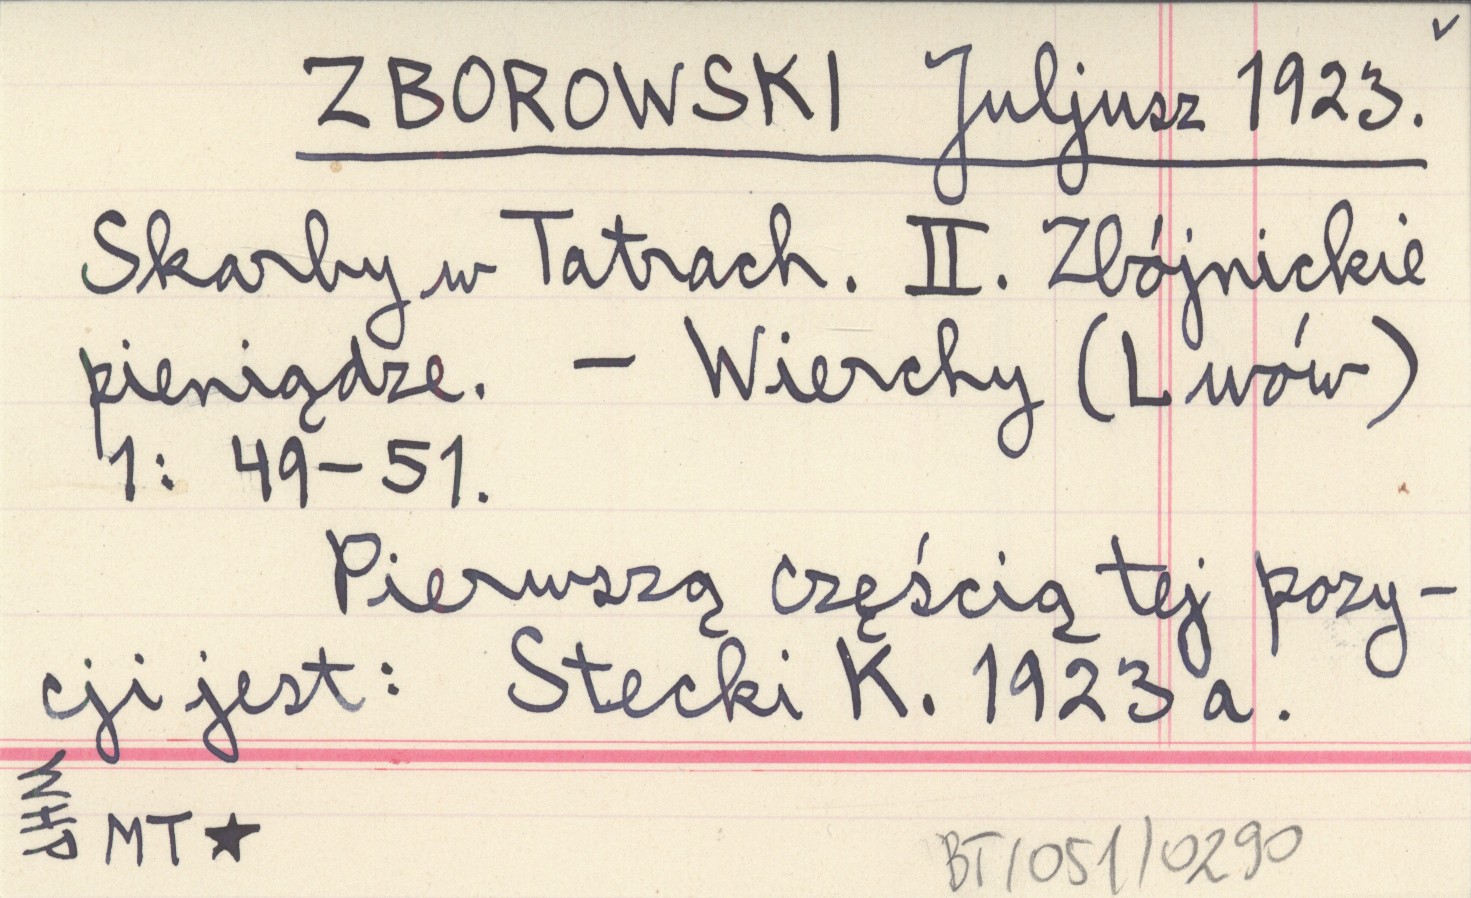 v
ZBOROWSKI Juljusz 1923.
Skarby w Tatrach. II. Zbójnickie
pieniądze. – Wierchy (Lwów)
1: 49–51.
Pierwszą częścią tej pozy-
cji jest: Stecki K. 1923a.
WHP MT ★
BT/051/0290